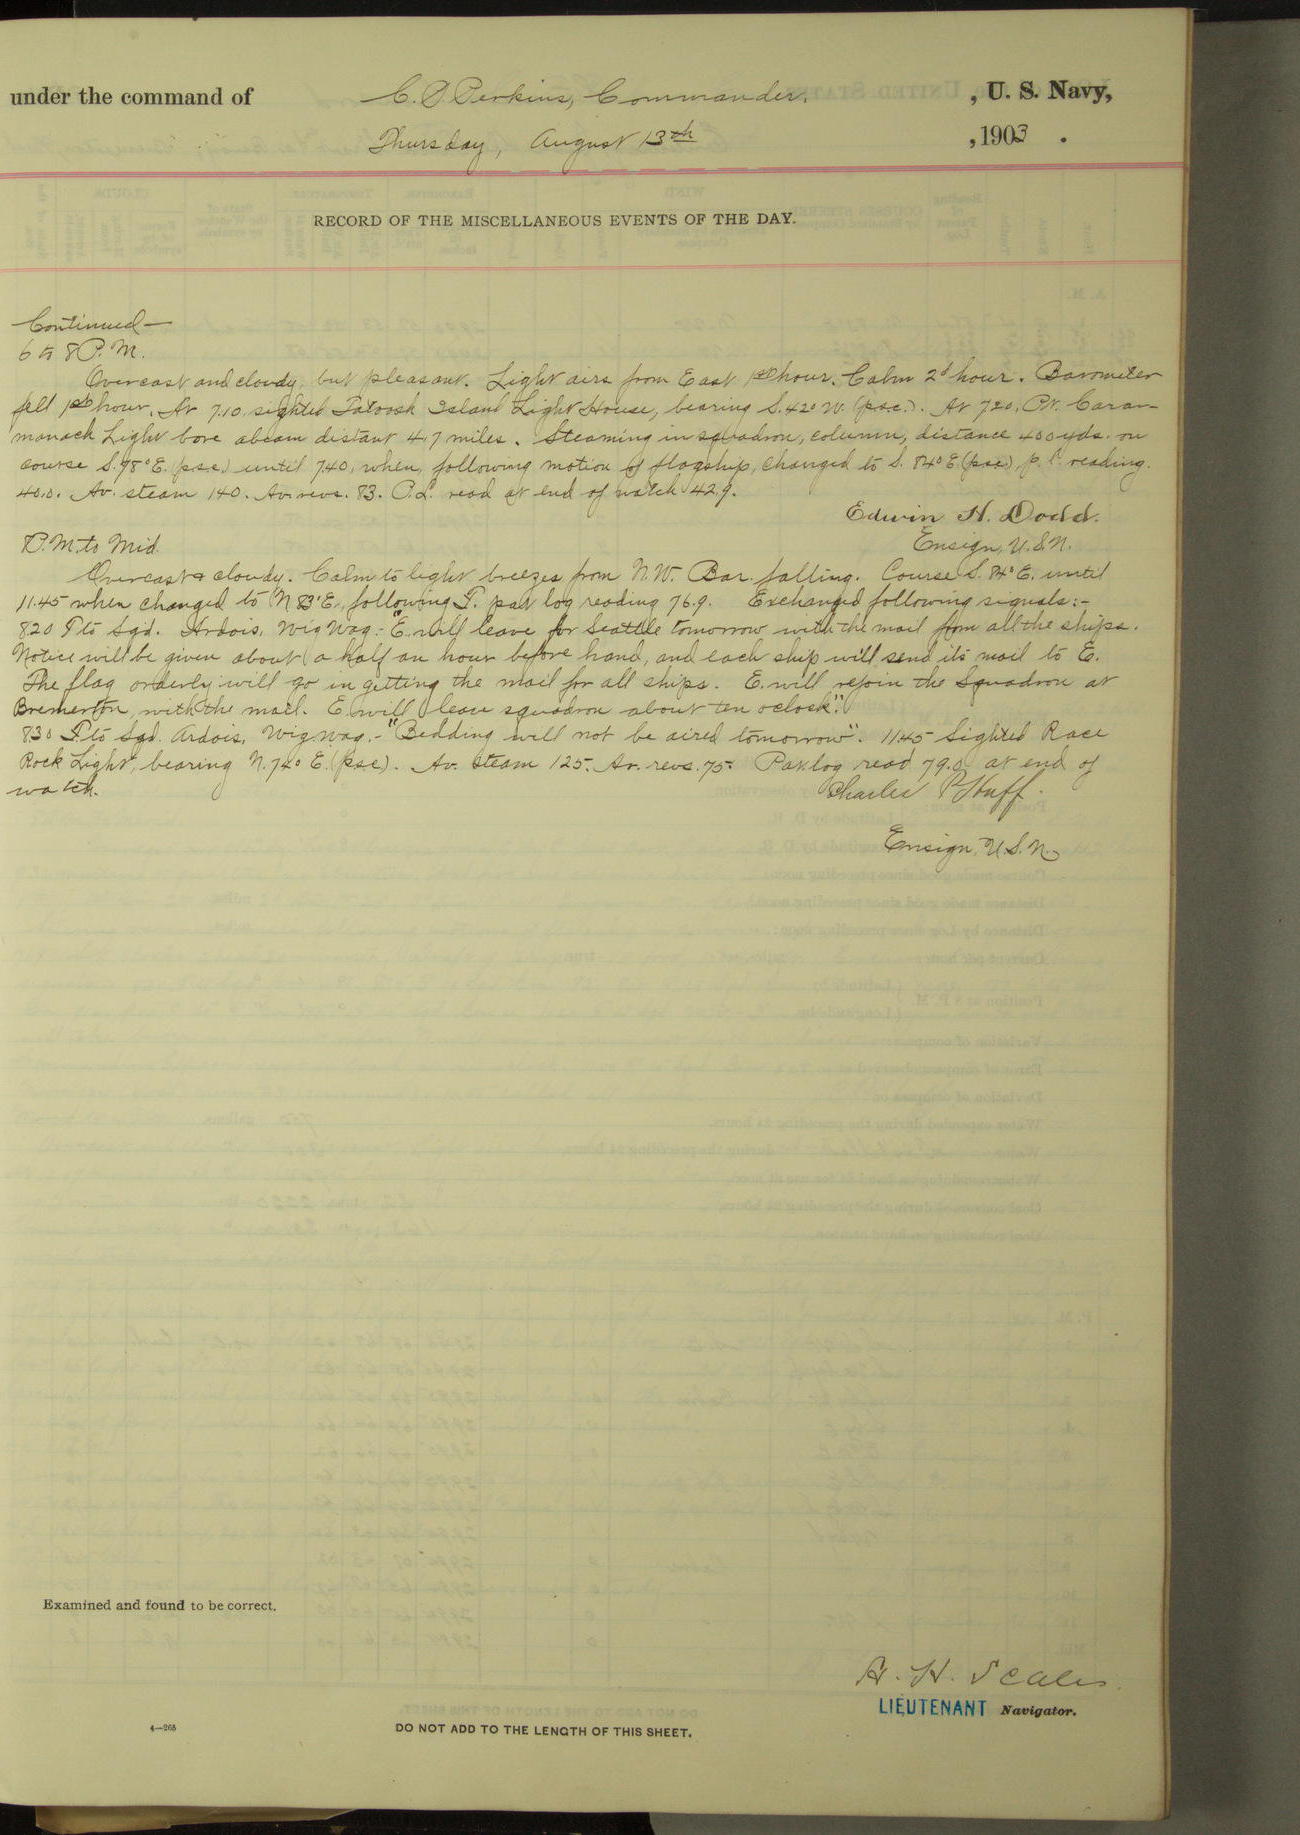 under the command of C. P. Perkins, Commander. , U. S. Navy,
Thursday, August 13th , 1903 .
RECORD OF THE MISCELLANEOUS EVENTS OF THE DAY.
Continued—
6 to 8 P.M.
Overcast and cloudy, but pleasant. Light airs from East 1st hour. Calm 2d hour. Barometer
fell 1st hour. At 7.10, sighted Tatoosh Island Light House, bearing S. 42° W. (psc.). At 7 20, Pt. Caran-
manach Light bore abeam distant 4.7 miles. Steaming in squadron, column, distance 400 yds. on
course S. 78° E. (psc.) until 7 40, when, following motion of flagship, changed to S. 84° E (psc), p. l. reading.
40.0. Av. steam 140. Av. revs. 83. P.L. read at end of watch 42.9.
Edwin H. Dodd.
Ensign, U.S.N.
8 P.M. to Mid.
Overcast & cloudy. Calm to light breezes from N.W. Bar. falling. Course S. 84° E. until
11.45 when changed to N 83° E, following F. pat log reading 76.9. Exchanged following signals:-
8 20 F to Sqd. Ardois, Wig Wag:- "E. will leave for Seattle tomorrow with the mail from all the ships.
Notice will be given about a half an hour before hand, and each ship will send its mail to E.
The flag orderly will go in getting the mail for all ships. E. will rejoin the Squadron at
Bremerton, with the mail. E. will leave squadron about ten oclock".
8 30 F to Sqd. Ardois, Wig Wag.- "Bedding will not be aired tomorrow". 11.45 Sighted Race
Rock Light, bearing N. 74° E. (psc). Av. steam 125. Av. revs. 75. Pat log read 79.0 at end of
watch.
Charles P Huff.
Ensign, U.S.N.
Examined and found to be correct.
A. H. Scales
LIEUTENANT Navigator.
4—265
DO NOT ADD TO THE LENGTH OF THIS SHEET.